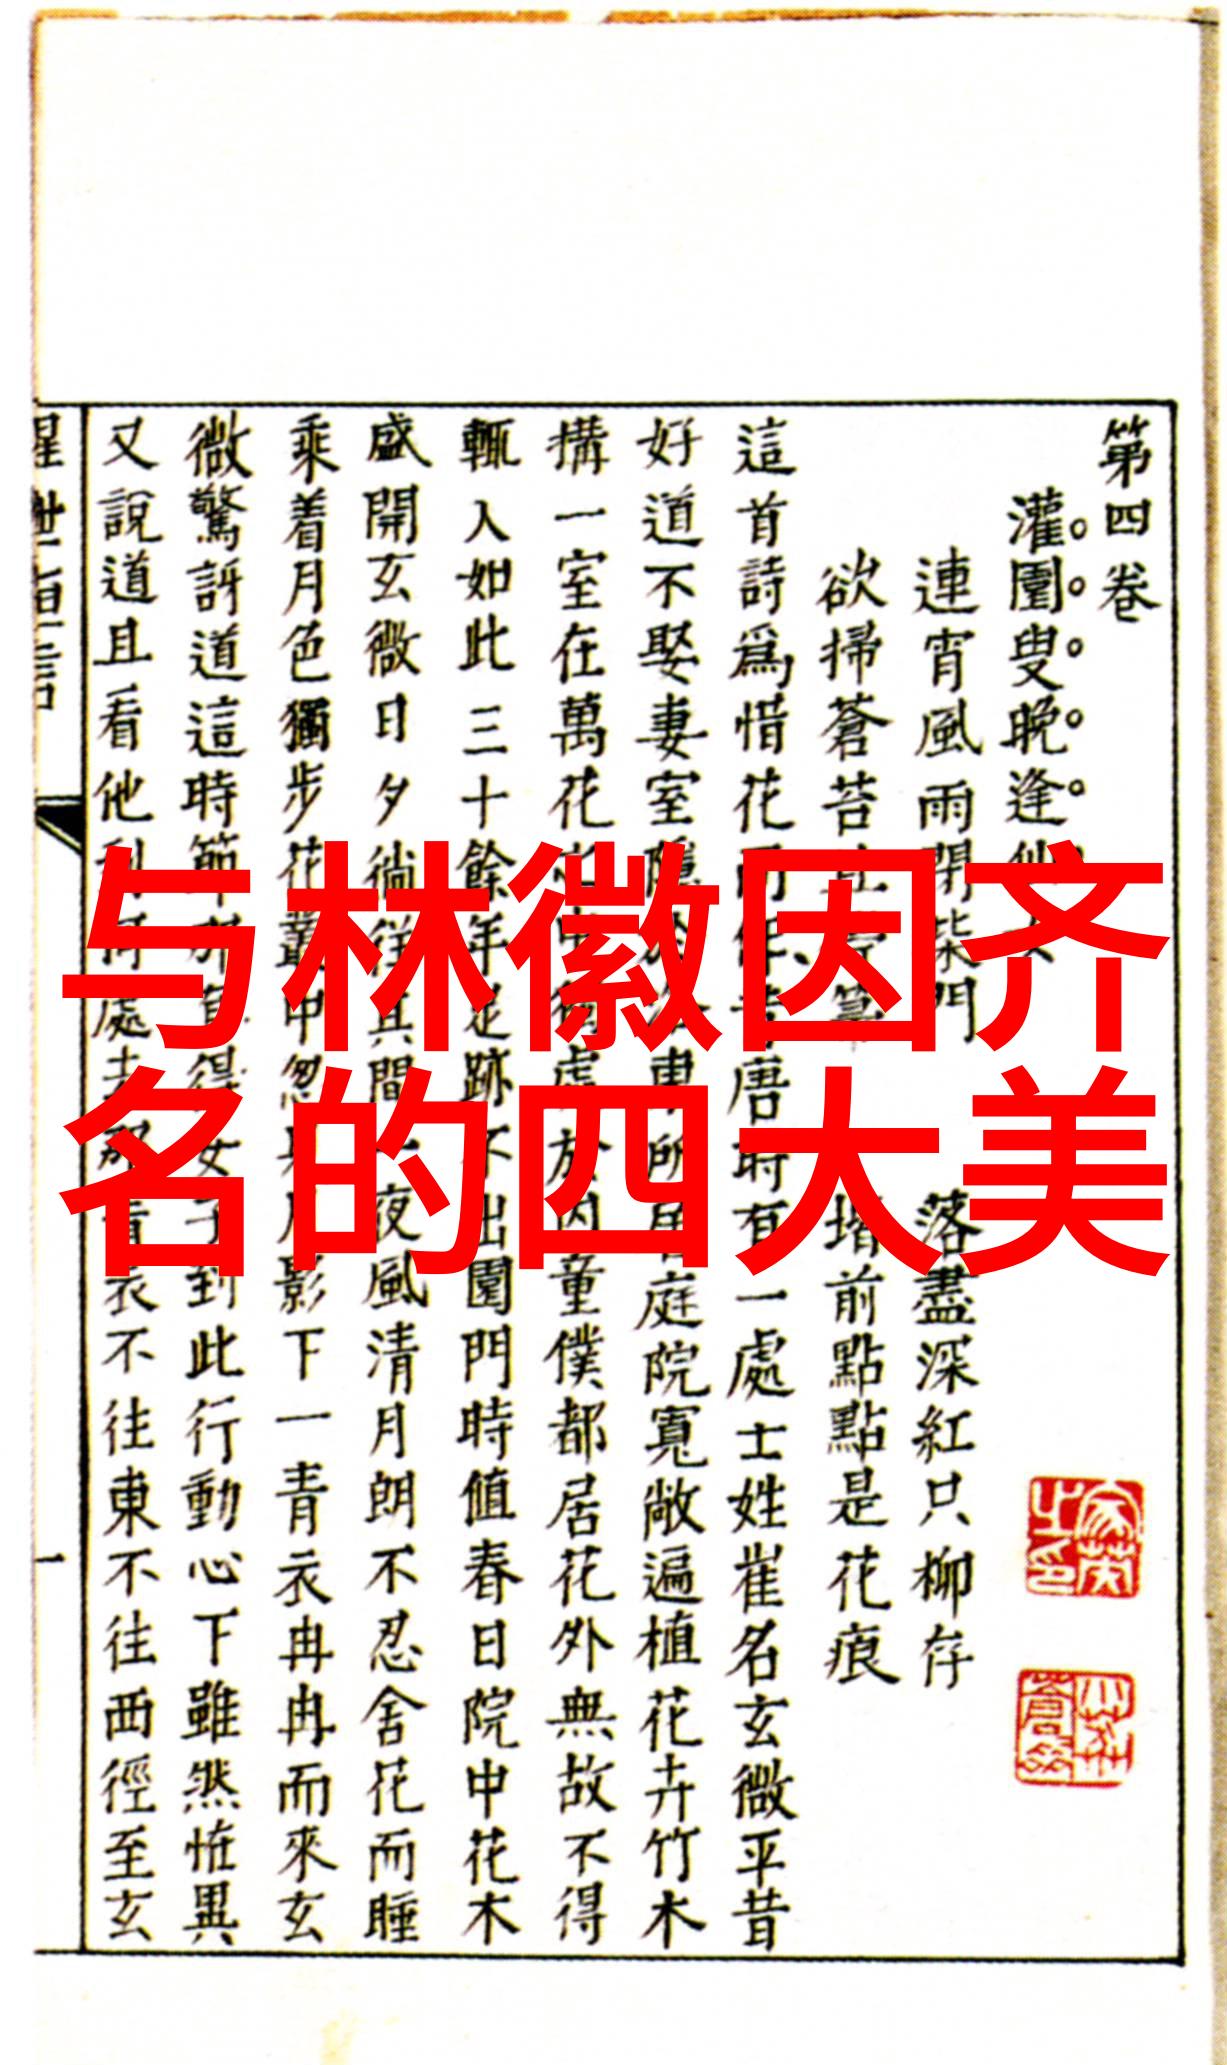 与林徽因齐
名的四大美
第四卷
灌園叟晚逢
連宵風雨閉柴門 落盡深紅只柳存
欲掃蒼苔 堦前點點是花痕
這首詩爲惜花而作昔唐時有一處士姓崔名玄微平昔
好道不娶妻室隱於 所居庭院寬敞遍植花卉竹木
搆一室在萬花 處於內童僕都居花外無故不得
輒入如此三十餘年足跡不出園門時值春日院中花木
盛開玄微日夕徜徉其間一夜風清月朗不忍舍花而睡
乘着月色獨步花叢中忽 月影下一青衣冉冉而來玄
微驚訝道這時節 得女子到此行動心下雖然怪異
又說道且看他到何處去那青衣不往東不往西徑至玄
一